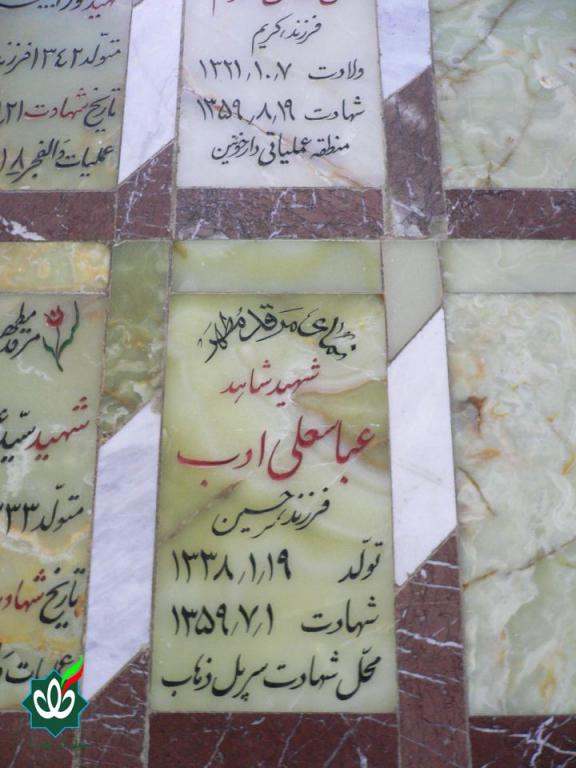 فرزند کریم
ولادت ۱۳۲۱٫۱۰٫۷
شهادت ۱۳۵۹٫۸٫۱۹
منطقه عملیاتی دارخوئین
متولد ۱۳۴۲ فرز
تاریخ شهادت ۲۱
عملیات والفجر ۸
نمای مرقد مطهر
شهید شاهد
عباسعلی ادب
فرزند حسین
تولّد ۱۳۳۸٫۱٫۱۹
شهادت ۱۳۵۹٫۷٫۱
محلّ شهادت سرپل ذهاب
مرقد مطهر
شهید سیّد
متولّد ۳۳
تاریخ شهاد